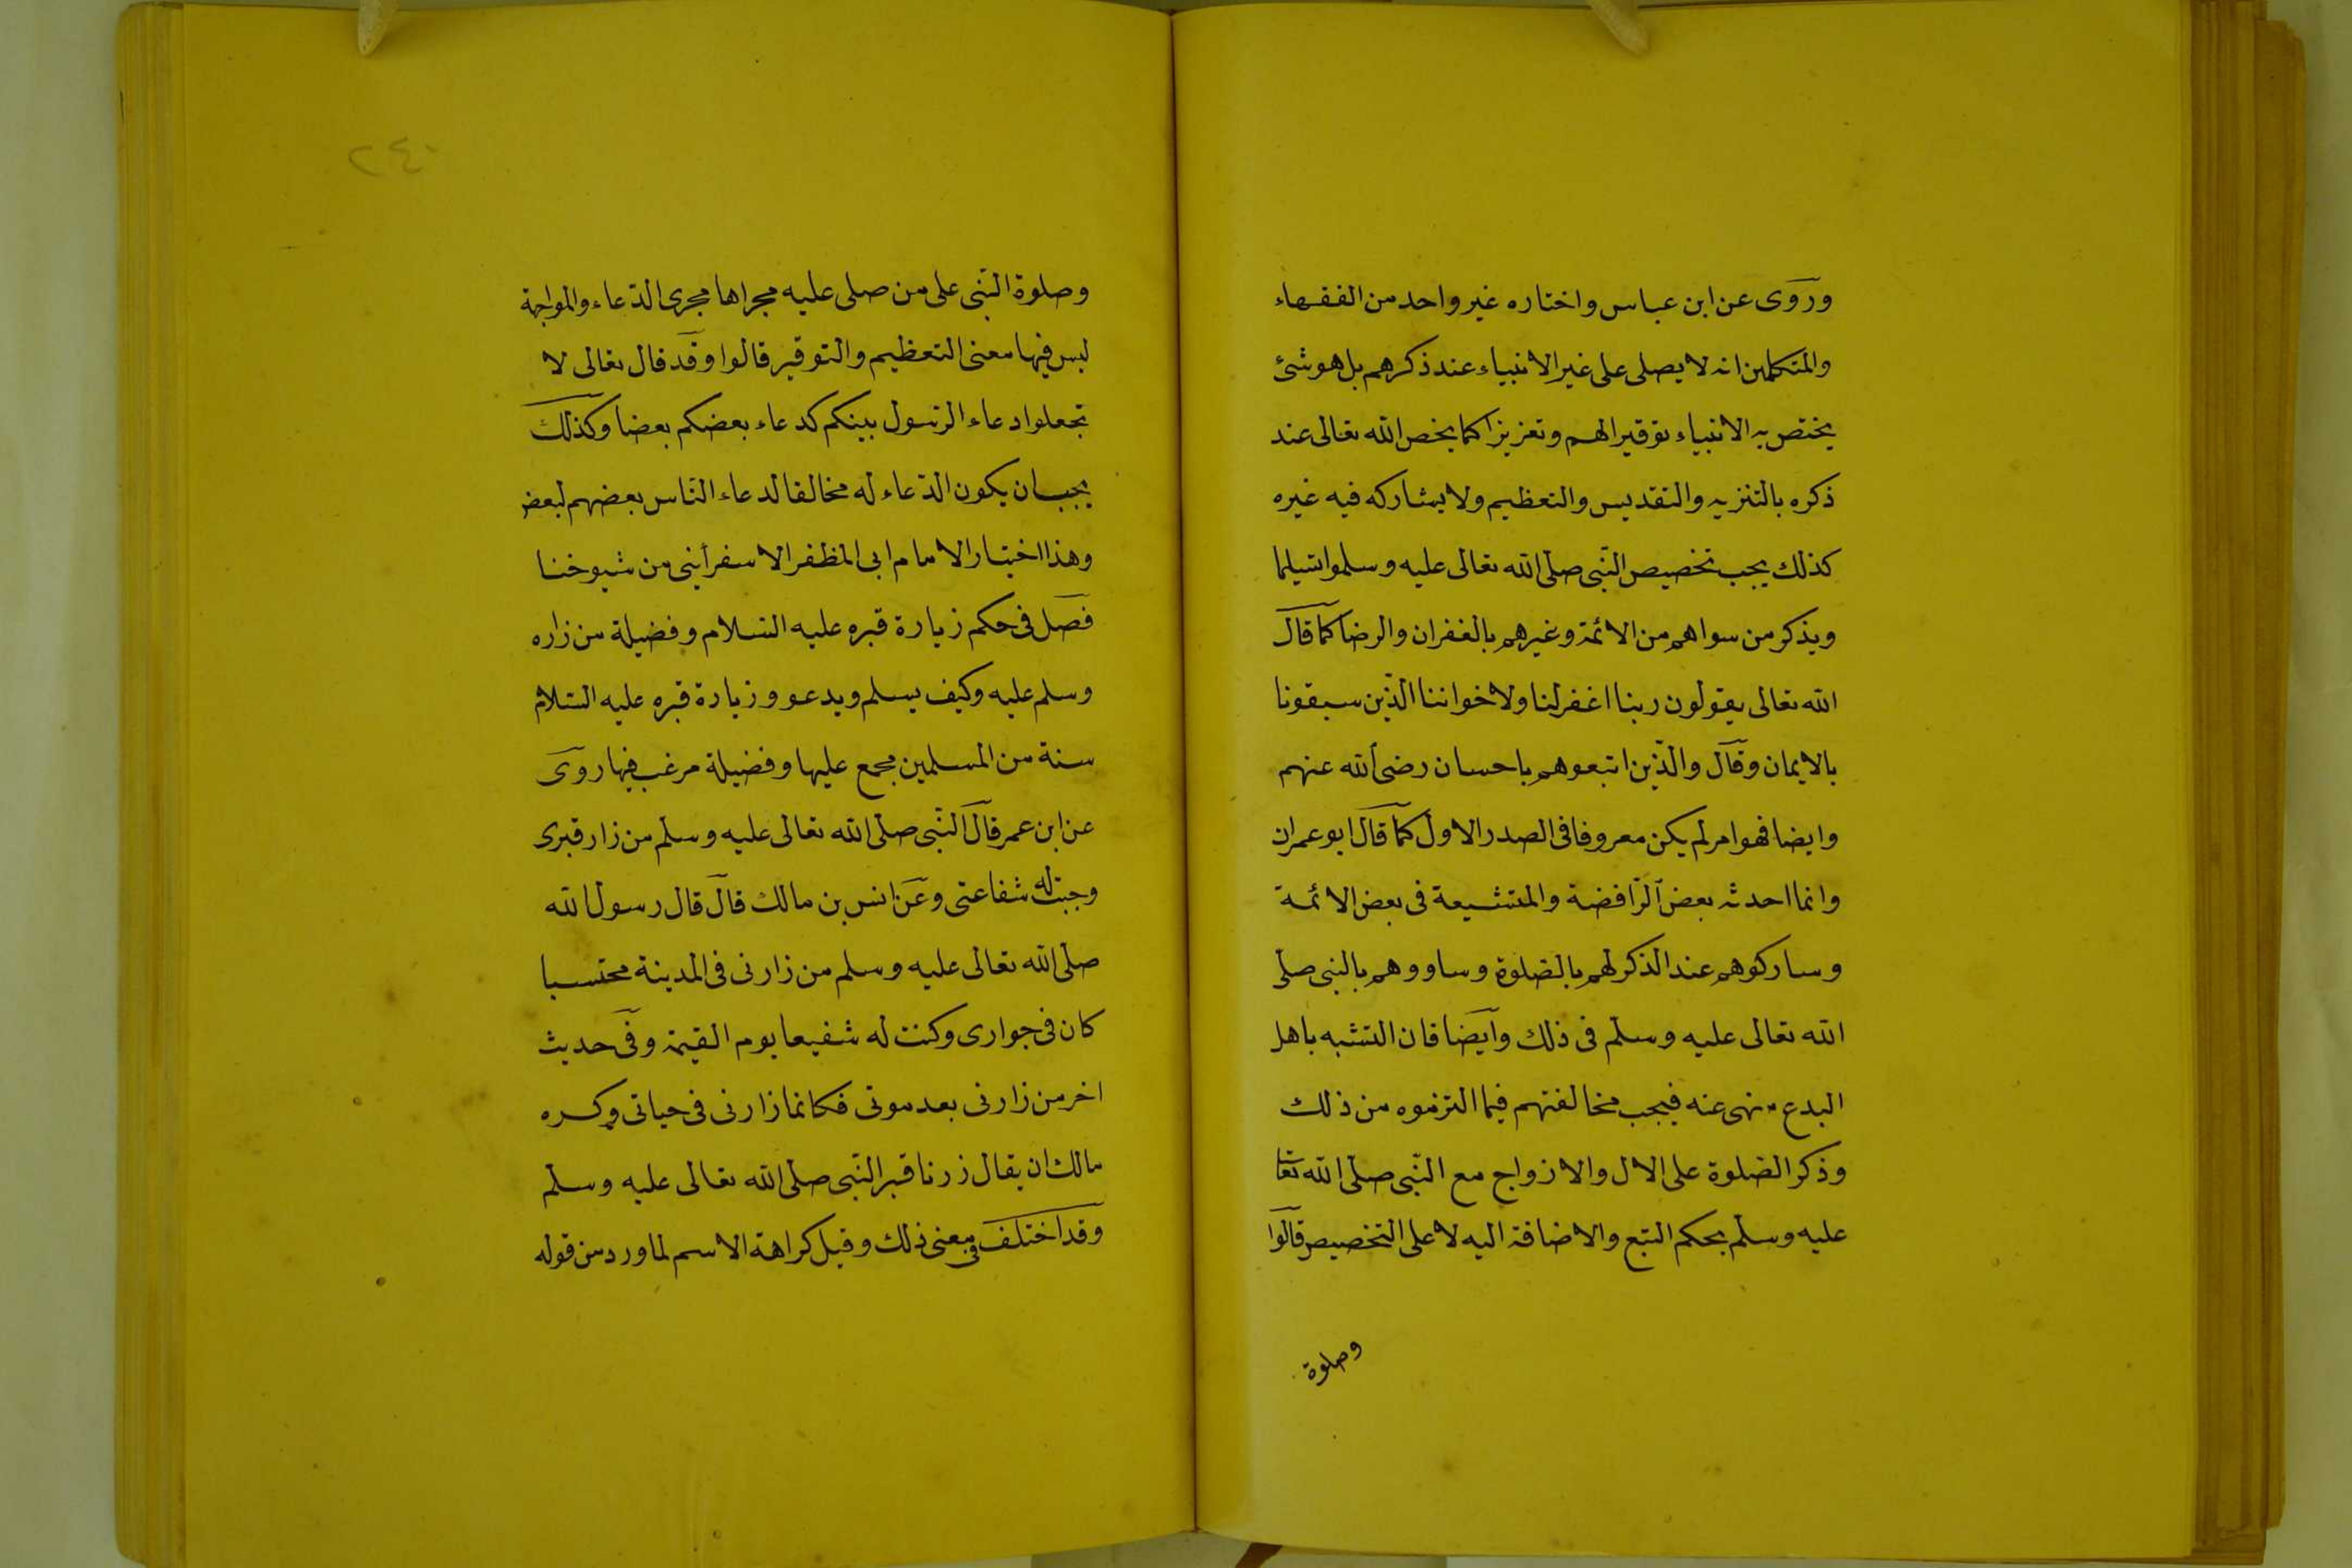 وروى عن ابن عباس واختاره غير واحد من الفقهاء
والمتكلمين انه لا يصلى على غير الانبياء عند ذكرهم بل هو شئ
يختص به الانبياء توقيرا لهم وتعزيزا كما يخص الله تعالى عند
ذكره بالتنزيه والتقديس والتعظيم ولا يشاركه فيه غيره
كذلك يجب تخصيص النبى صلى الله تعالى عليه وسلموا تسليما
ويذكر من سواهم من الائمة وغيرهم بالغفران والرضا كما قال
الله تعالى يقولون ربنا اغفر لنا ولاخواننا الذين سبقونا
بالايمان وقال والذين اتبعوهم باحسان رضى الله عنهم
وايضا فهو امر لم يكن معروفا فى الصدر الاول كما قال ابو عمران
وانما احدثه بعض الرافضة والمتشيعة فى بعض الائمة
وساركوهم عند الذكر لهم بالصلوة وساووهم بالنبى صلى
الله تعالى عليه وسلم فى ذلك وايضا فان التشبه باهل
البدع منهى عنه فيجب مخالفتهم فيما التزموه من ذلك
وذكر الصلوة على الال والازواج مع النبى صلى الله تعا
عليه وسلم بحكم التبع والاضافة اليه لا على التخصيص قالوا
وصلوة
٢٤٠
وصلوة النبى على من صلى عليه مجراها مجرى الدعاء والمواجهة
ليس فيها معنى التعظيم والتوقير قالوا وقد قال تعالى لا
تجعلوا دعاء الرسول بينكم كدعاء بعضكم بعضا وكذلك
يجب ان يكون الدعاء له مخالفا لدعاء الناس بعضهم لبعض
وهذا اختيار الامام ابى المظفر الاسفرأينى من شيوخنا
فصل فى حكم زيارة قبره عليه السلام وفضيلة من زاره
وسلم عليه وكيف يسلم ويدعو وزيارة قبره عليه السلام
سنة من المسلمين مجمع عليها وفضيلة مرغب فيها روى
عن ابن عمر قال النبى صلى الله تعالى عليه وسلم من زار قبرى
وجبت له شفاعتى وعن انس بن مالك قال قال رسول الله
صلى الله تعالى عليه وسلم من زارنى فى المدينة محتسبا
كان فى جوارى وكنت له شفيعا يوم القيمة وفى حديث
اخر من زارنى بعد موتى فكانما زارنى فى حياتى وكره
مالك ان يقال زرنا قبر النبى صلى الله تعالى عليه وسلم
وقد اختلف فى معنى ذلك وقيل كراهة الاسم لما ورد من قوله